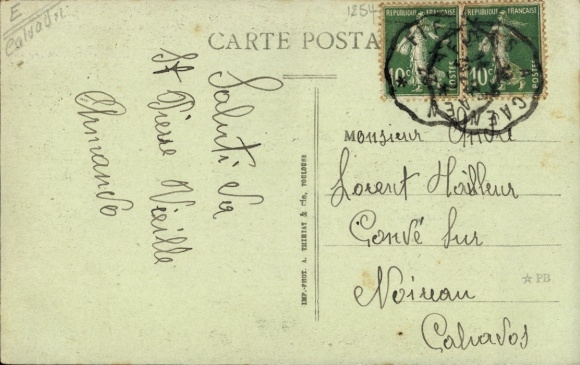 E
Calvados
1254
CARTE POSTA
REPUBLIQUE FRANÇAISE
10c
POSTES
REPUBLIQUE FRANÇAISE
10c
POSTES
CAEN
Saluti da
St Pierre Vieille
Armando
IMP.-PHOT. A. THIRIAT & Cie, TOULOUSE
Monsieur André
Lorent Tailleur
Condé Sur
Noireau
Calvados
PB